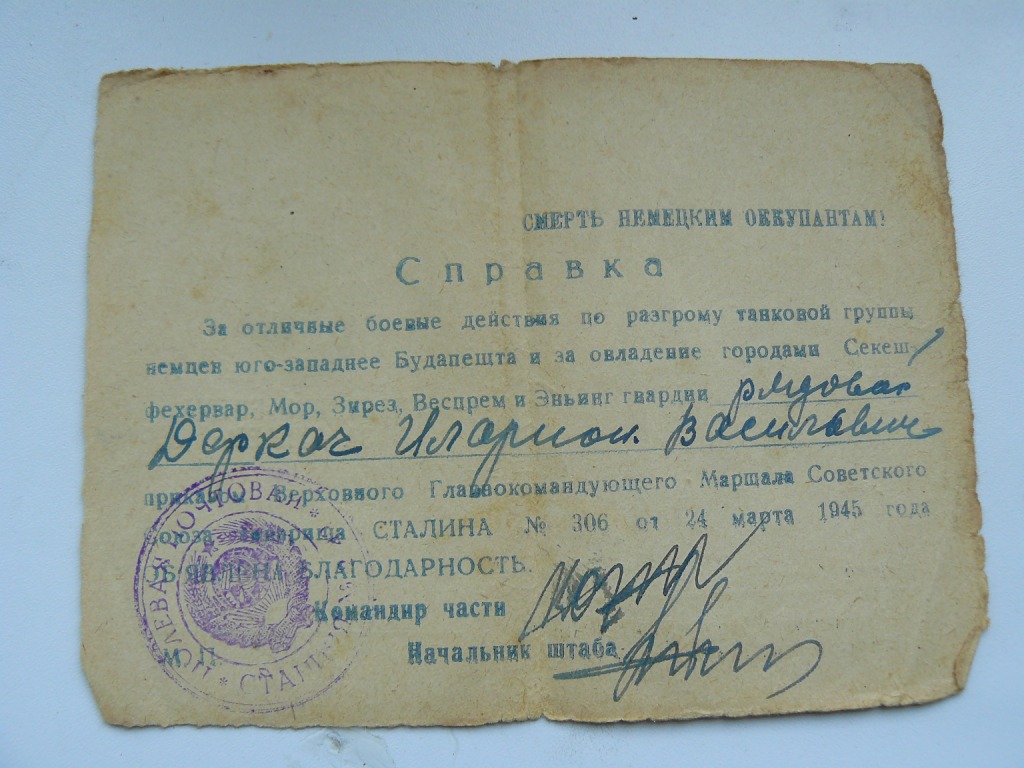 СМЕРТЬ НЕМЕЦКИМ ОККУПАНТАМ!
Справка
За отличные боевые действия по разгрому танковой группы
немцев юго-западнее Будапешта и за овладение городами Секеш-
фехервар, Мор, Зирез, Веспрем и Эньинг гвардии рядовой
Деркач Иларион Василович
приказом Верховного Главнокомандующего Маршала Советского
Союза товарища СТАЛИНА № 306 от 24 марта 1945 года
ОБЪЯВЛЕНА БЛАГОДАРНОСТЬ.
Командир части
Начальник штаба
М. П.
ПОЛЕВАЯ ПОЧТОВАЯ * СТАНЦИЯ *